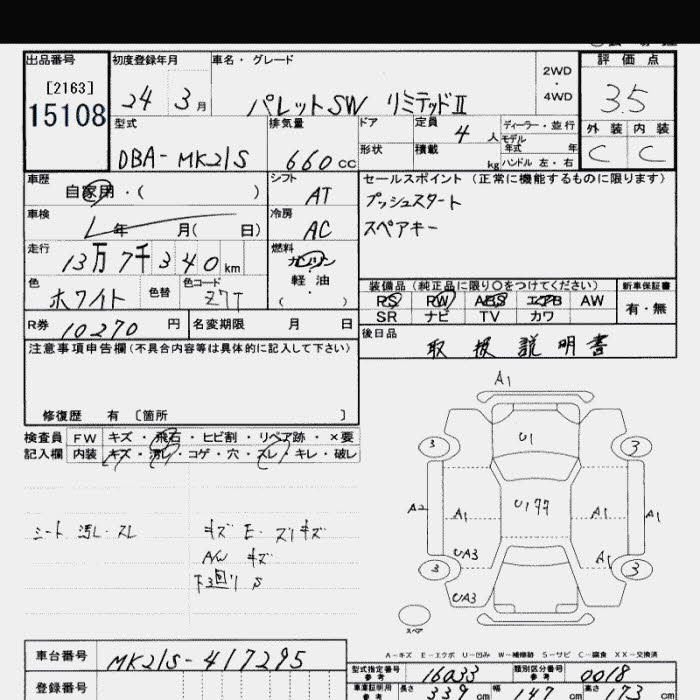 出品番号 初度登録年月 車名・グレード 2WD・4WD 評価点
[2163]
15108 24 3月 パレットSW リミテッドⅡ 3.5
型式 排気量 ドア 定員 4人 ディーラー・並行 外装 内装
モデル年式 年
DBA-MK21S 660cc 形状 積載 kg ハンドル 左・右 C C
車歴 自家用・( ) シフト AT セールスポイント (正常に機能するものに限ります)
プッシュスタート
車検 年 月( 日) 冷房 AC スペアキー
走行 13万7千340km 燃料 ガソリン
軽油
( )
色 ホワイト 色替 色コード Z7T 装備品 (純正品に限り○をつけてください) 新車保証書
PS PW ABS エアB AW 有・無
SR ナビ TV カワ
R券 10270円 名変期限 月 日 後日品
取扱説明書
注意事項申告欄(不具合内容等は具体的に記入して下さい)
修復歴 有 〔箇所 〕
検査員 FW キズ・飛石・ヒビ割・リペア跡・×要
記入欄 内装 キズ・汚レ・コゲ・穴・スレ・キレ・破レ
シート 汚レ・スレ キズ E・ズリキズ
A/W キズ
下回り S
A1
U1
3 3
A2 A1 U177 A1 A1
UA3 A1
3 3
UA3
スペア
A-キズ E-エクボ U-凹み W-補修跡 S-サビ C-腐食 XX-交換済
車台番号 MK21S-417295 型式指定番号 参考 16033 類別区分番号 参考 0018
登録番号 車庫証明用 参考 長さ 339cm 幅 147cm 高さ 173cm